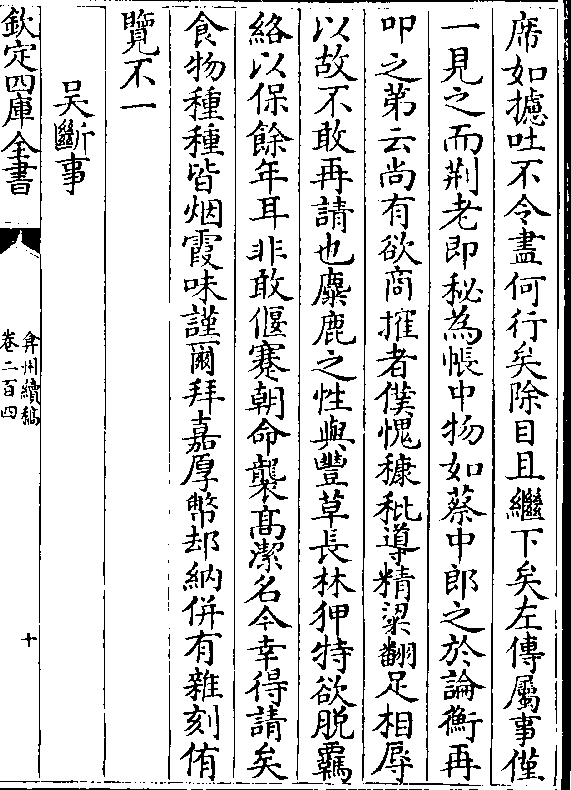 席如攄吐不令盡何行矣除目且繼下矣左傳屬事僅
一見之而荆老即秘為帳中物如蔡中郎之於論衡再
叩之第云尚有欲商搉者僕愧穅秕導精粱翻足相辱
以故不敢再請也麋鹿之性與豐草長林狎特欲脱羈
絡以保餘年耳非敢偃蹇朝命襲髙潔名今幸得請矣
食物種種皆烟霞味謹爾拜嘉厚幣却納併有雜刻侑
覽不一
吴斷事
欽定四庫全書
弇州續稿
卷二百四
十